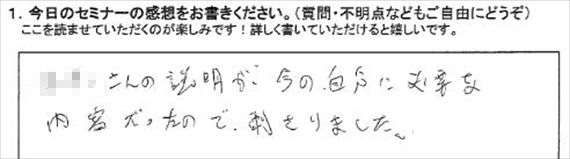 1. 今日のセミナーの感想をお書きください。(質問・不明点などもご自由にどうぞ)
ここを読ませていただくのが楽しみです!詳しく書いていただけると嬉しいです。
さんの説明が、今の自分に必要な
内容だったので、刺さりました。